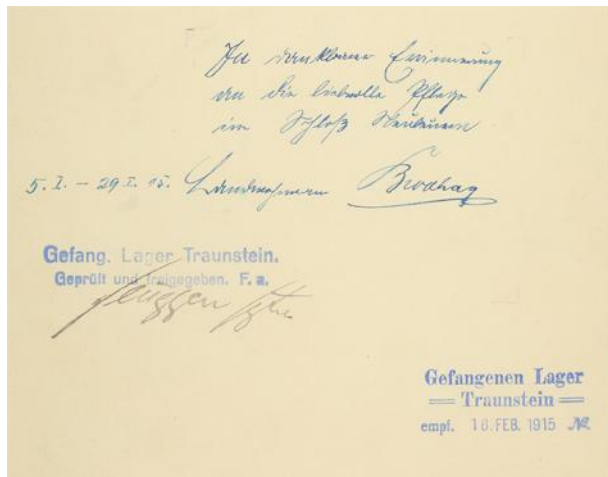 In dankbarer Erinnerung
an die liebevolle Pflege
im Schloß Neubeuern
5. I. – 29 I. 15. Landwehrmann Brodhag
Gefang. Lager Traunstein.
Geprüft und freigegeben. F. a.
Gefangenen Lager
Traunstein
empf. 16. FEB. 1915